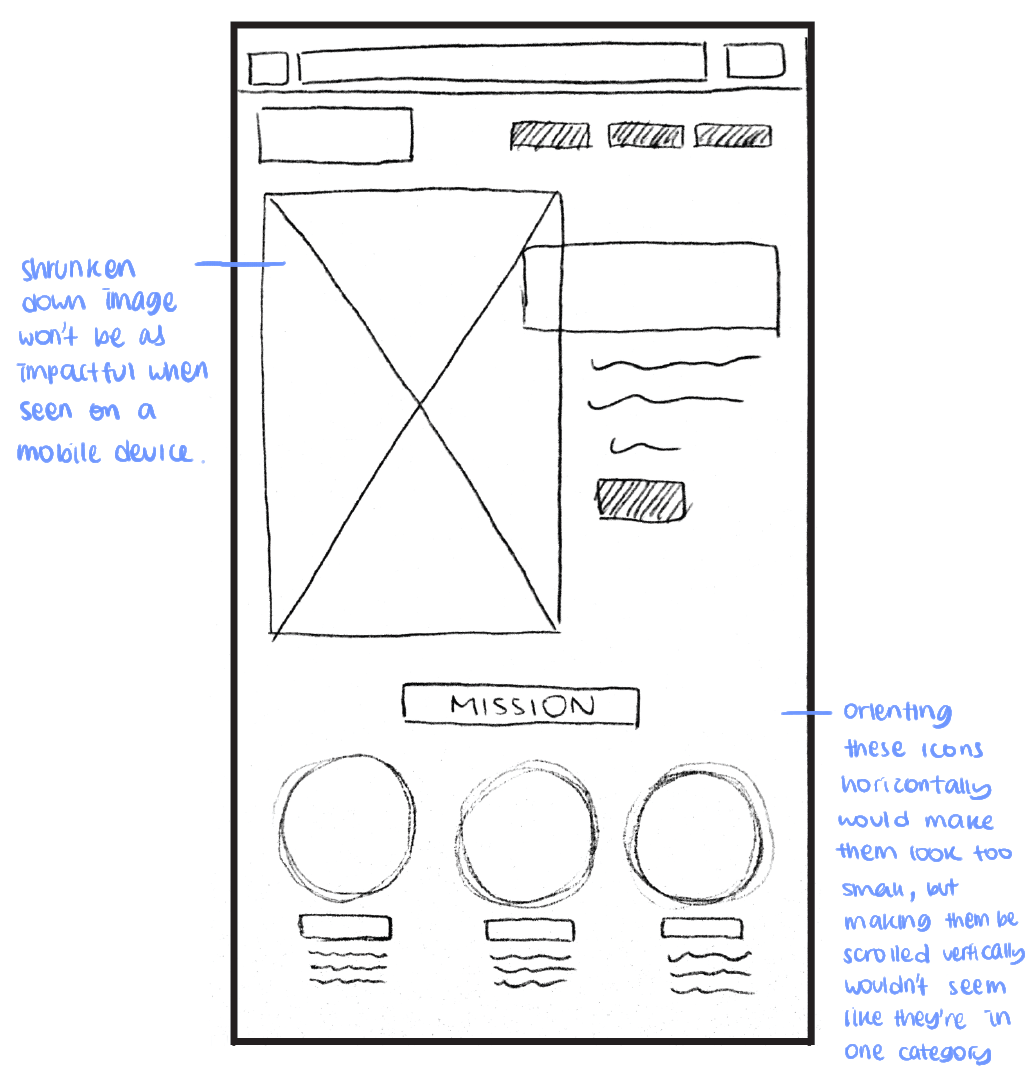 shrunken
down image
won't be as
impactful when
seen on a
mobile device.
MISSION
orienting
these icons
horizontally
would make
them look too
small, but
making them be
scrolled vertically
wouldn't seem
like they're in
one category